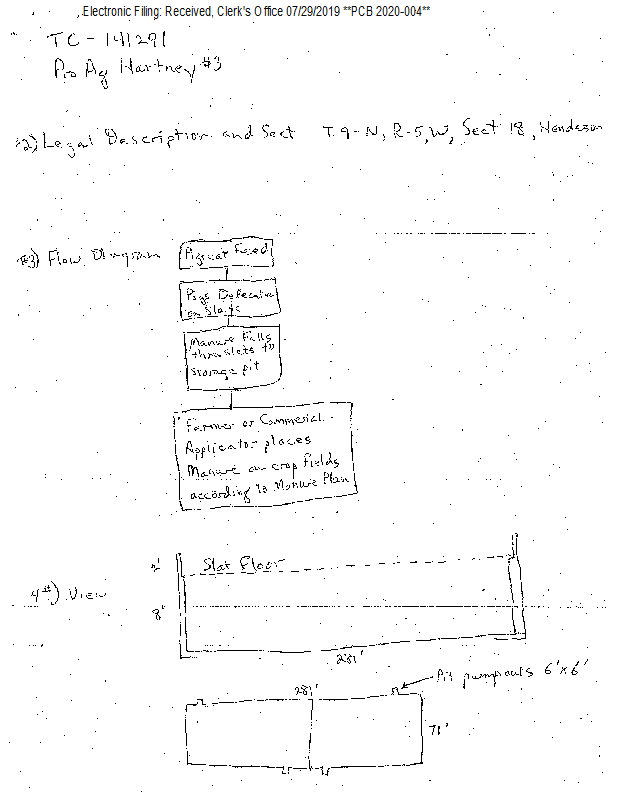 Electronic Filing: Received, Clerk's Office 07/29/2019 **PCB 2020-004**
TC - 141291
Pro Ag Hartney #3
#2) Legal Description and Sect T.9-N, R-5,W, Sect 18, Henderson
#3) Flow Diagram
Pigs eat Feed
Pigs Defecation
on Slats
Manure Falls
thru slats to
storage pit
Farmer or Commercial
Applicator places
Manure on crop fields
according to Manure Plan
Slat Floor
4#) View
8'
281'
Pit pumpouts 6'x6'
281'
71'